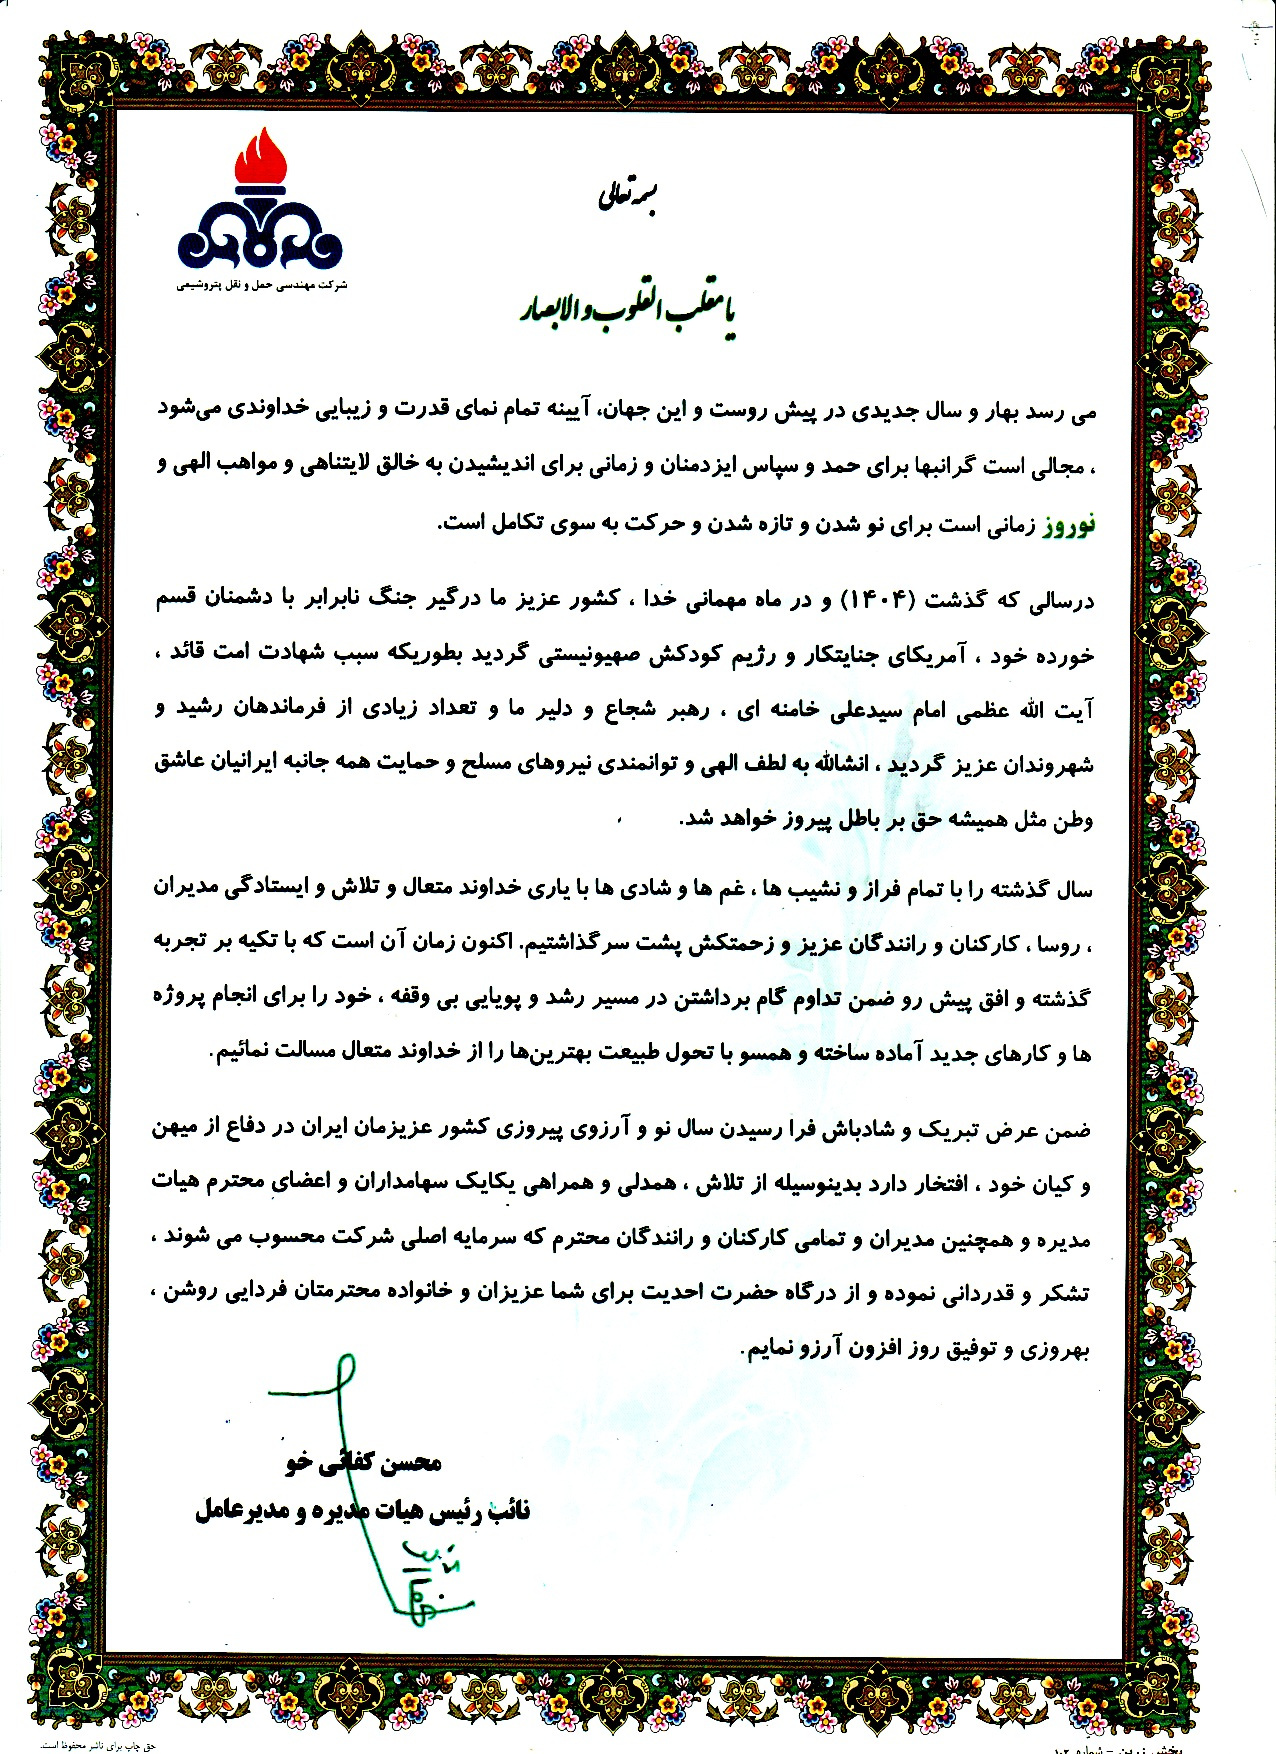 بسمه تعالی
شرکت مهندسی حمل و نقل پتروشیمی
یا مقلب القلوب و الابصار
می رسد بهار و سال جدیدی در پیش روست و این جهان، آیینه تمام نمای قدرت و زیبایی خداوندی می‌شود
، مجالی است گرانبها برای حمد و سپاس ایزدمنان و زمانی برای اندیشیدن به خالق لایتناهی و مواهب الهی و
نوروز زمانی است برای نو شدن و تازه شدن و حرکت به سوی تکامل است.
درسالی که گذشت (۱۴۰۴) و در ماه مهمانی خدا ، کشور عزیز ما درگیر جنگ نابرابر با دشمنان قسم
خورده خود ، آمریکای جنایتکار و رژیم کودکش صهیونیستی گردید بطوریکه سبب شهادت امت قائد ،
آیت الله عظمی امام سیدعلی خامنه ای ، رهبر شجاع و دلیر ما و تعداد زیادی از فرماندهان رشید و
شهروندان عزیز گردید ، انشالله به لطف الهی و توانمندی نیروهای مسلح و حمایت همه جانبه ایرانیان عاشق
وطن مثل همیشه حق بر باطل پیروز خواهد شد.
سال گذشته را با تمام فراز و نشیب ها ، غم ها و شادی ها با یاری خداوند متعال و تلاش و ایستادگی مدیران
، روسا ، کارکنان و رانندگان عزیز و زحمتکش پشت سرگذاشتیم. اکنون زمان آن است که با تکیه بر تجربه
گذشته و افق پیش رو ضمن تداوم گام برداشتن در مسیر رشد و پویایی بی وقفه ، خود را برای انجام پروژه
ها و کارهای جدید آماده ساخته و همسو با تحول طبیعت بهترین‌ها را از خداوند متعال مسالت نمائیم.
ضمن عرض تبریک و شادباش فرا رسیدن سال نو و آرزوی پیروزی کشور عزیزمان ایران در دفاع از میهن
و کیان خود ، افتخار دارد بدینوسیله از تلاش ، همدلی و همراهی یکایک سهامداران و اعضای محترم هیات
مدیره و همچنین مدیران و تمامی کارکنان و رانندگان محترم که سرمایه اصلی شرکت محسوب می شوند ،
تشکر و قدردانی نموده و از درگاه حضرت احدیت برای شما عزیزان و خانواده محترمتان فردایی روشن ،
بهروزی و توفیق روز افزون آرزو نمایم.
محسن کفائی خو
نائب رئیس هیات مدیره و مدیرعامل
حق چاپ برای ناشر محفوظ است.